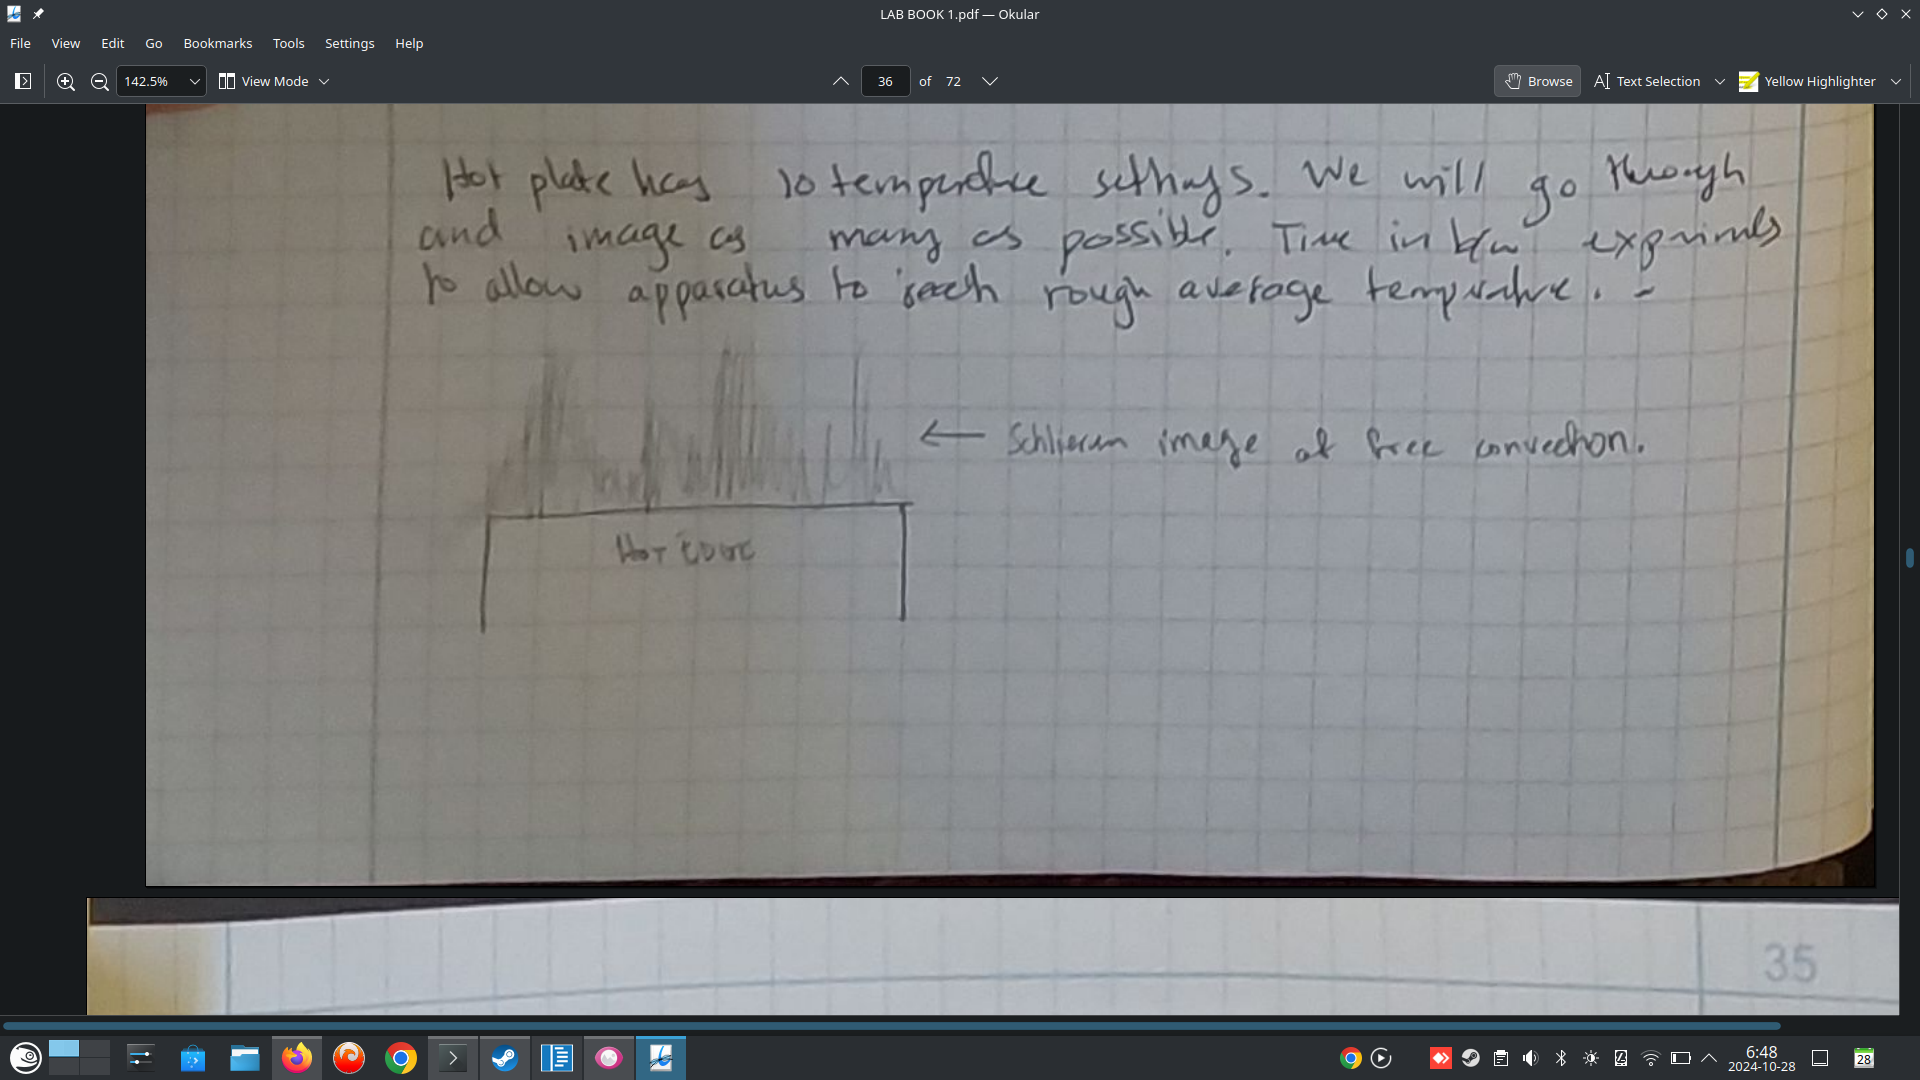 LAB BOOK 1.pdf — Okular
File View Edit Go Bookmarks Tools Settings Help
142.5% View Mode 36 of 72 Browse Text Selection Yellow Highlighter
Hot plate has 10 temperature settings. We will go through
and image as many as possible. Time in b/w expriments
to allow apparatus to reach rough average temperature. -
← Schlieren image of free convection.
HOT EDGE
35
6:48
2024-10-28
28